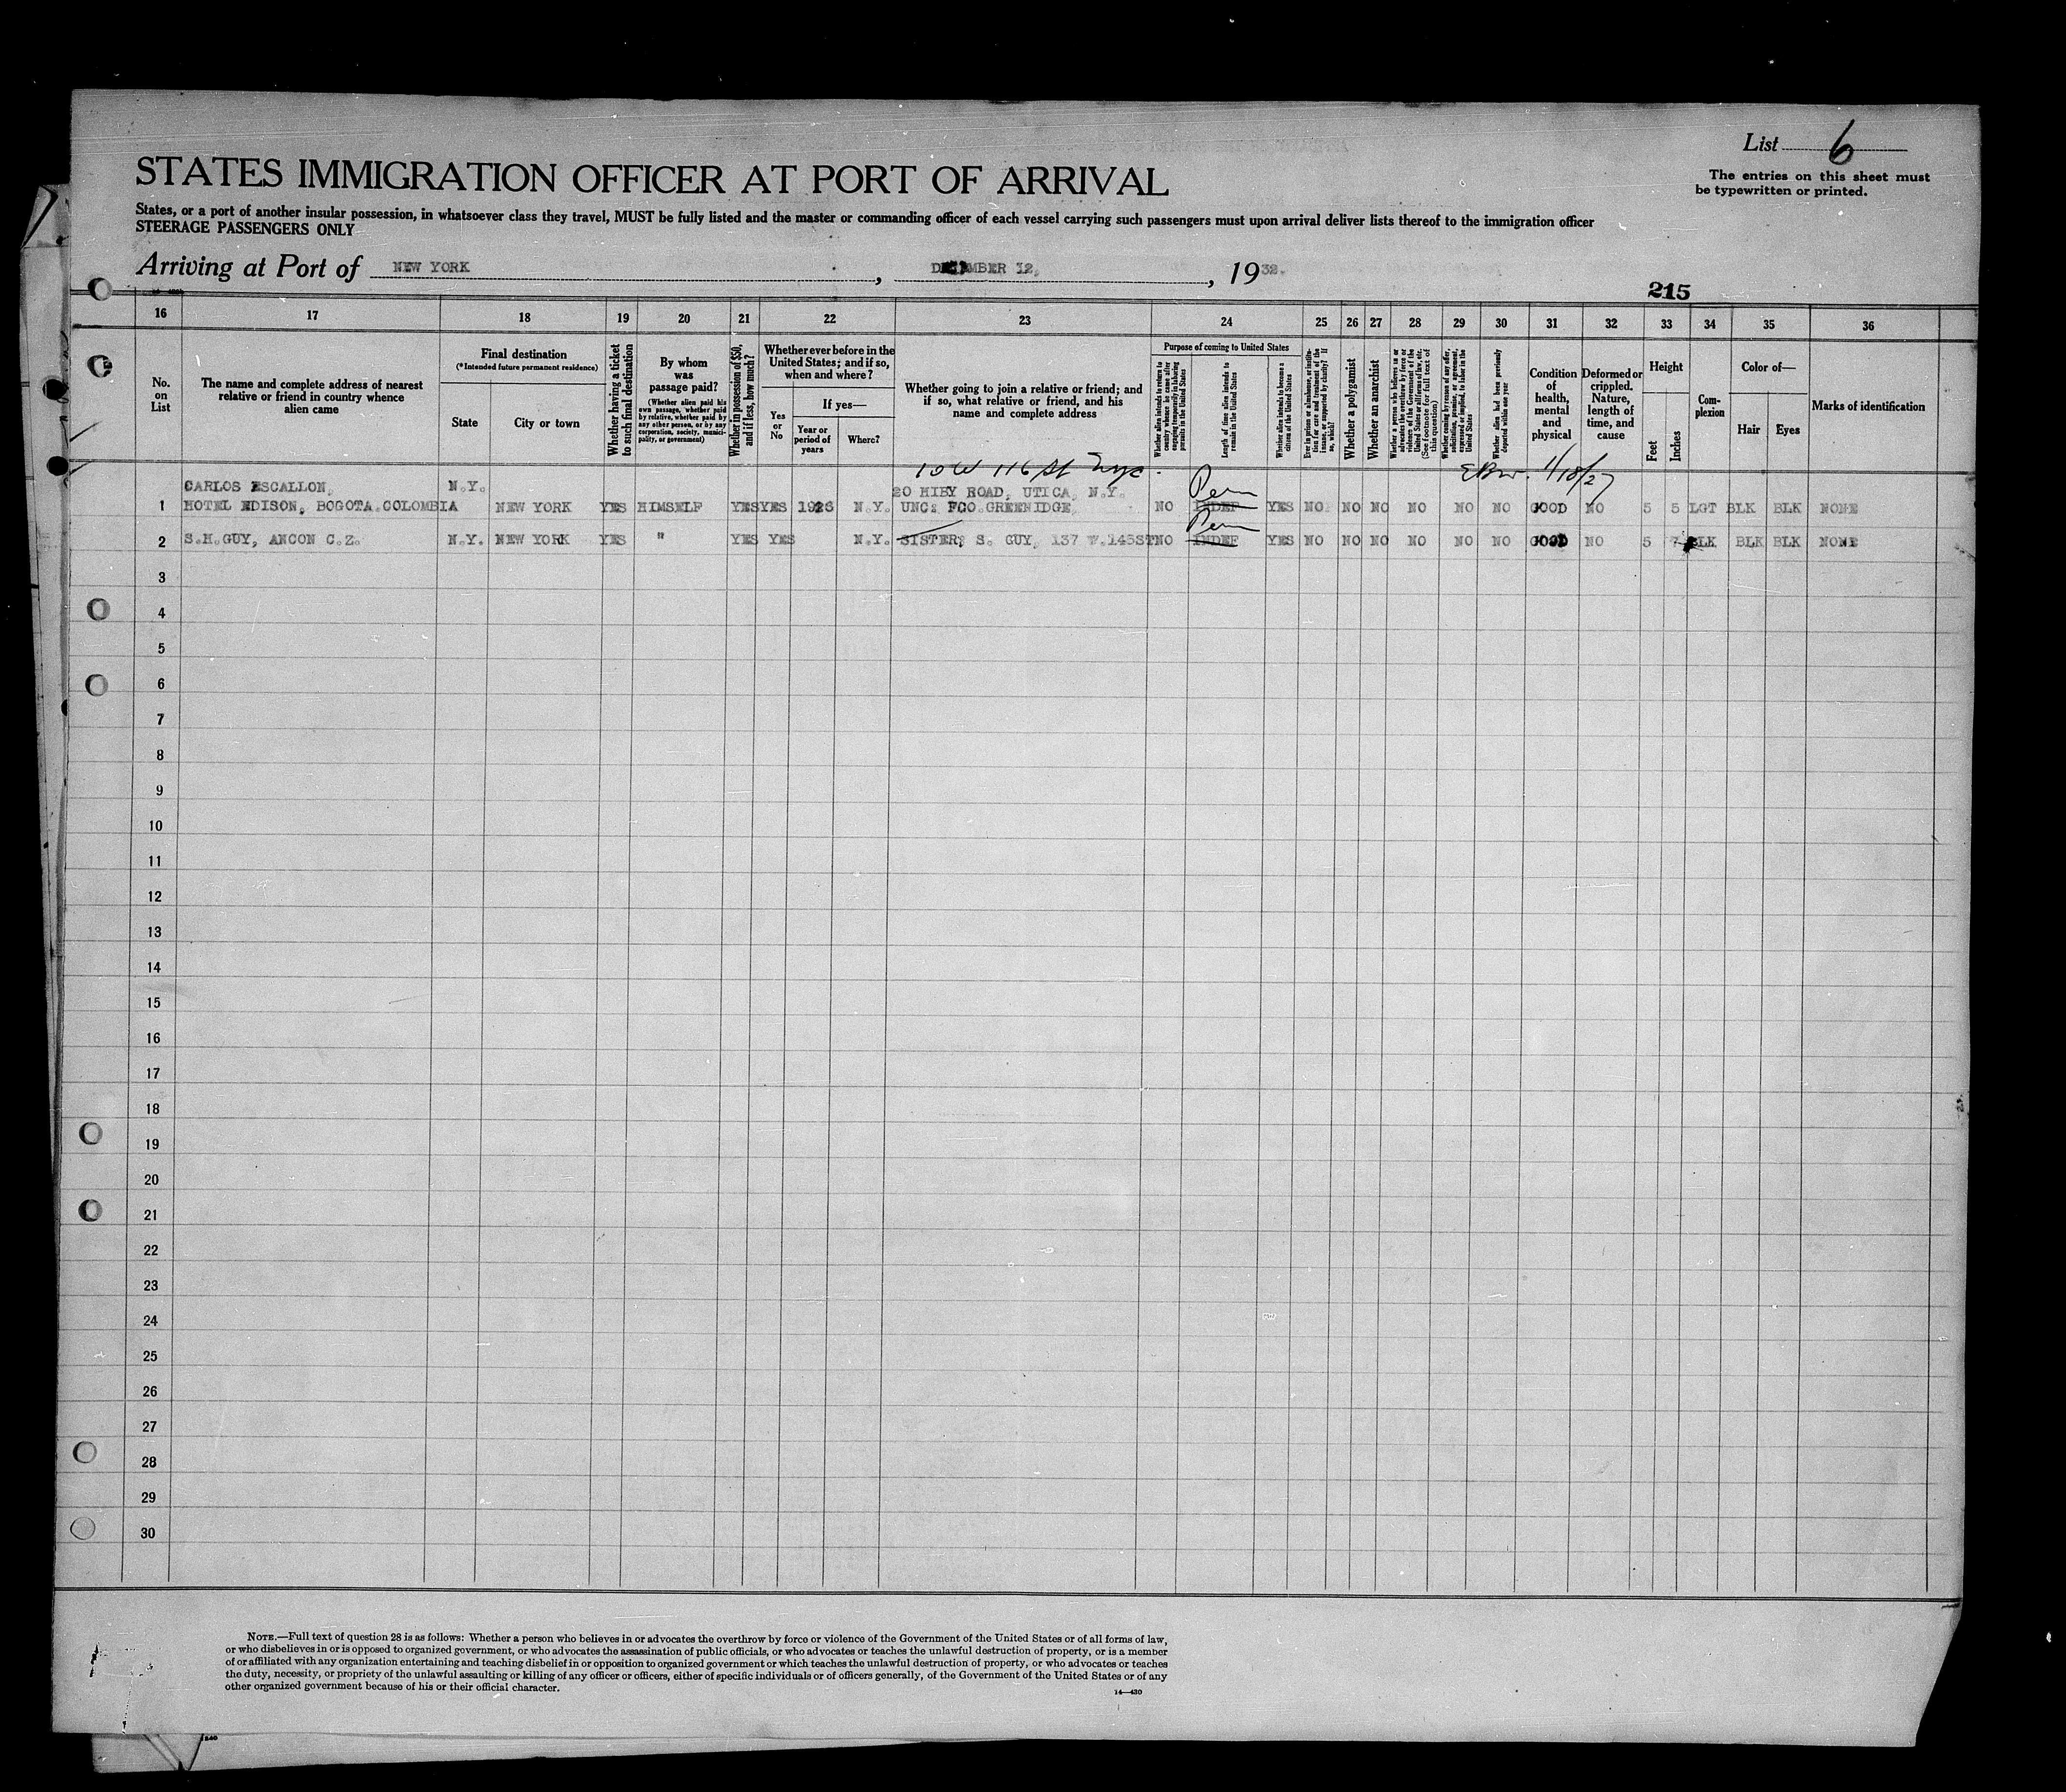 List 6
The entries on this sheet must
be typewritten or printed.
STATES IMMIGRATION OFFICER AT PORT OF ARRIVAL
States, or a port of another insular possession, in whatsoever class they travel, MUST be fully listed and the master or commanding officer of each vessel carrying such passengers must upon arrival deliver lists thereof to the immigration officer
STEERAGE PASSENGERS ONLY
Arriving at Port of NEW YORK, DECEMBER 12, 1932.
215
16 17 18 19 20 21 22 23 24 25 26 27 28 29 30 31 32 33 34 35 36
No.
on
List
The name and complete address of nearest
relative or friend in country whence
alien came
Final destination
(*Intended future permanent residence)
State
City or town
Whether having a ticket
to such final destination
By whom
was
passage paid?
(Whether alien paid his
own passage, whether paid
by relative, whether paid by
any other person, or by any
corporation, society, munici-
pality, or government)
Whether in possession of $50,
and if less, how much?
Whether ever before in the
United States; and if so,
when and where?
Yes
or
No
If yes—
Year or
period of
years
Where?
Whether going to join a relative or friend; and
if so, what relative or friend, and his
name and complete address
Purpose of coming to United States
Whether alien intends to return to
country whence he came after
engaging temporarily in laboring
pursuits in the United States
Length of time alien intends to
remain in the United States
Whether alien intends to become a
citizen of the United States
Ever in prison or almshouse, or institu-
tion for care and treatment of the
insane, or supported by charity? If
so, which?
Whether a polygamist
Whether an anarchist
Whether a person who believes in or
advocates the overthrow by force or
violence of the Government of the
United States or all forms of law, etc.
(See footnote for full text of
this question)
Whether coming by reason of any offer,
solicitation, promise, or agreement,
expressed or implied, to labor in the
United States
Whether alien had been previously
deported within one year
Condition
of
health,
mental
and
physical
Deformed or
crippled.
Nature,
length of
time, and
cause
Height
Feet
Inches
Com-
plexion
Color of—
Hair
Eyes
Marks of identification
10 W 116 St NYC.
1/18/27
CARLOS ESCALLON, N.Y. 20 HIBY ROAD, UTICA, N.Y. Perm
1 HOTEL EDISON, BOGOTA.COLOMBIA NEW YORK YES HIMSELF YES YES 1926 N.Y. UNC: FCO.GREENIDGE, NO INDEF YES NO NO NO NO NO NO GOOD NO 5 5 LGT BLK BLK NONE
Perm
2 S.H.GUY, ANCON C.Z. N.Y. NEW YORK YES " YES YES N.Y. SISTER, S. GUY, 137 W.145ST NO INDEF YES NO NO NO NO NO NO GOOD NO 5 7 BLK BLK BLK NONE
3
4
5
6
7
8
9
10
11
12
13
14
15
16
17
18
19
20
21
22
23
24
25
26
27
28
29
30
NOTE.—Full text of question 28 is as follows: Whether a person who believes in or advocates the overthrow by force or violence of the Government of the United States or of all forms of law,
or who disbelieves in or is opposed to organized government, or who advocates the assassination of public officials, or who advocates or teaches the unlawful destruction of property, or is a member
of or affiliated with any organization entertaining and teaching disbelief in or opposition to organized government or which teaches the unlawful destruction of property, or who advocates or teaches
the duty, necessity, or propriety of the unlawful assaulting or killing of any officer or officers, either of specific individuals or of officers generally, of the Government of the United States or of any
other organized government because of his or their official character.
14—430